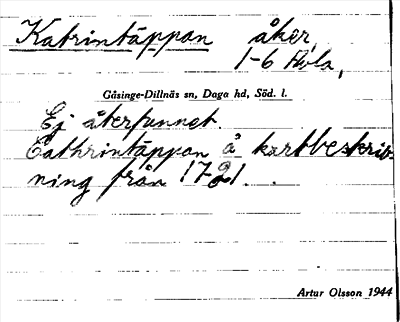 Katrintäppan åker,
1-6 Hola,
Gåsinge-Dillnäs sn, Daga hd, Söd. l.
Ej återfunnet.
Cathrintäppan å kartbeskriv-
ning från 1721.
Artur Olsson 1944